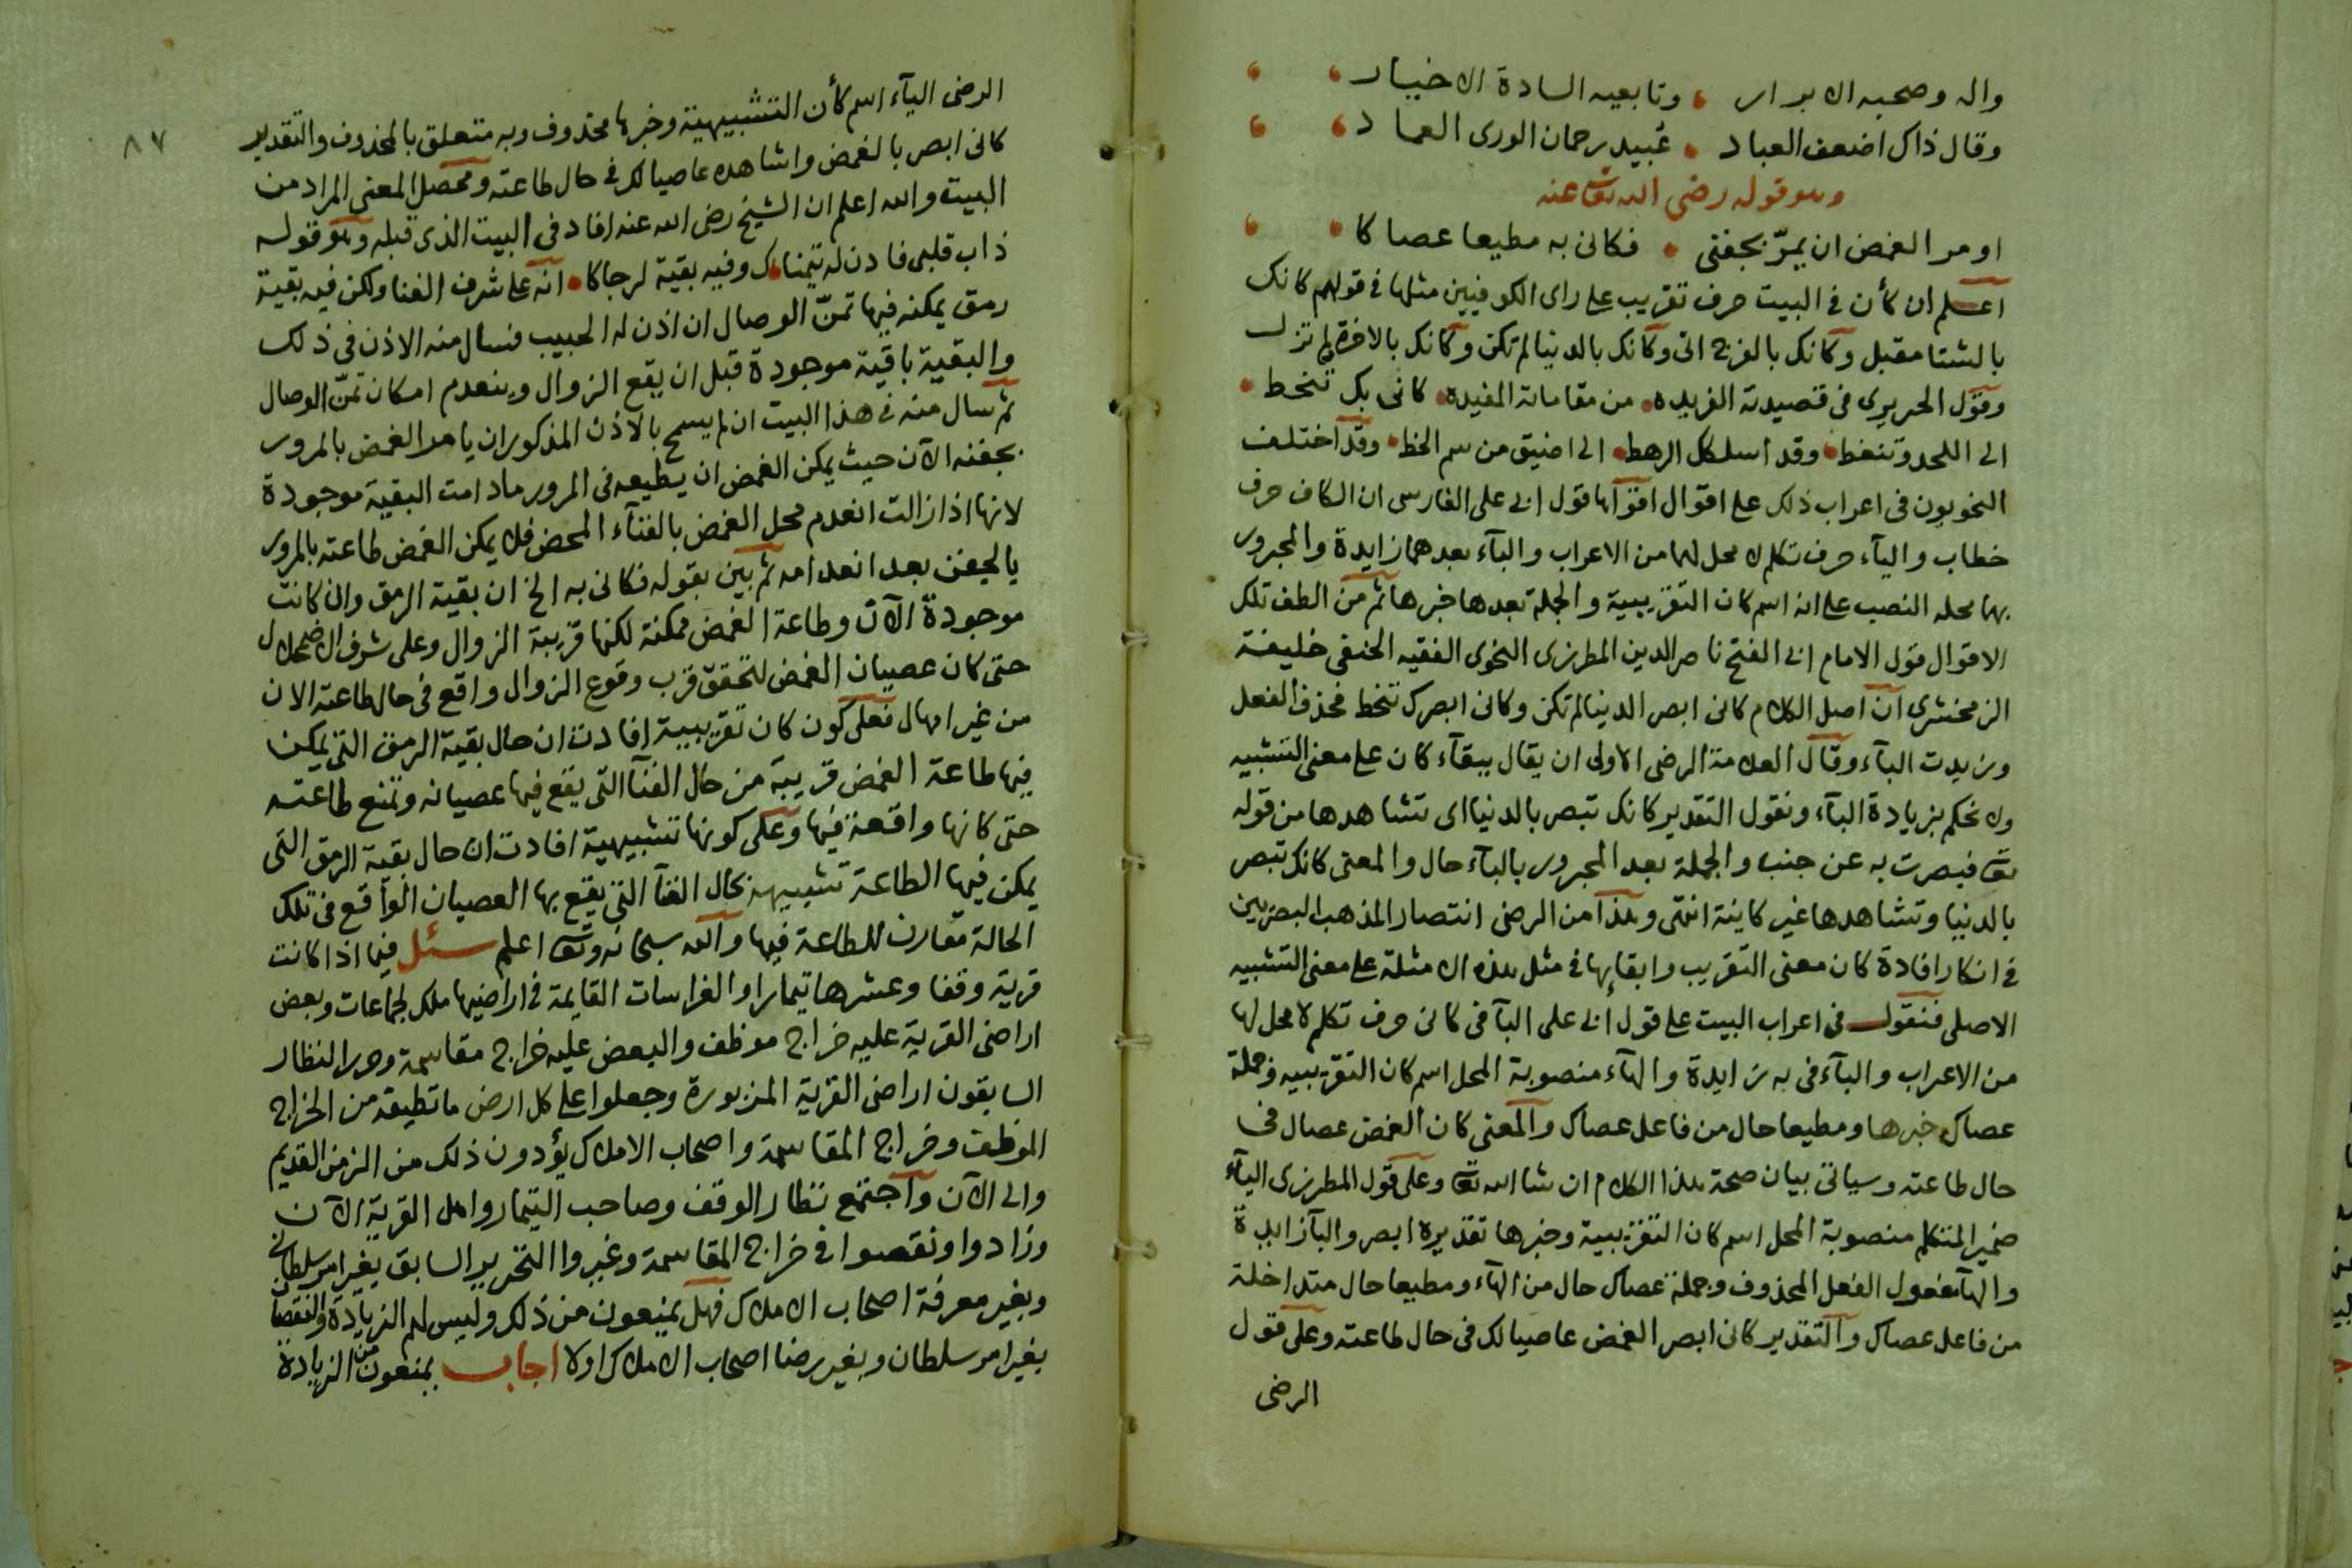 واله وصحبه الابرار ، وتابعيه السادة الاخيار ، ،
وقال ذاك اضعف العباد . عُبيد رحمان الورى العماد ، ،
وهو قوله رضى الله تعا عنه
او مر الغمض ان يمرّ بجفنى . فكانى به مطيعا عصاكا . ،
اعلم ان كأن فى البيت حرف تقريب على راى الكوفيين مثلها فى قولهم كانك
بالشتا مقبل وكانك بالفرج اتى وكانك بالدنيا لم تكن وكانك بالاخرة لم تزل
وقول الحريرى فى قصيدته الفريده . من مقاماته المفيده . كانى بك تنحط .
الى اللحد وتنغط . وقد اسلمك الرهط . الى اضيق من سم الخط . وقد اختلف
النحويون فى اعراب ذلك على اقوال اقواها قول ابى على الفارسى ان الكاف حرف
خطاب والياء حرف تكلم لا محل لهما من الاعراب والباء بعدهما زايدة والمجرور
بها محله النصب على انه اسم كان التقريبية والجملة بعدها خبرها ثم من الطف تلك
الاقوال قول الامام ابى الفتح ناصر الدين المطرزى النحوى الفقيه الحنفى خليفة
الزمخشرى ان اصل الكلام كانى ابصر الدنيا لم تكن وكانى ابصرك تنحط فحذف الفعل
وزيدت الباء وقال العلامة الرضى الاولى ان يقال ببقاء كان على معنى التشبيه
ولا نحكم بزيادة الباء ونقول التقدير كانك تبصر بالدنيا اى تشاهدها من قوله
تعا فبصرت به عن جنب والجملة بعد المجرور بالباء حال والمعنى كانك تبصر
بالدنيا وتشاهدها غير كاينة انتهى وهذا من الرضى انتصار المذهب البصريين
فى انكار افادة كان معنى التقريب وابقايها فى مثل هذه الامثلة على معنى التشبيه
الاصلى فنقول فى اعراب البيت على قول ابى على اليا فى كانى حرف تكلم لا محل لها
من الاعراب والباء فى به زايدة والهاء منصوبة المحل اسم كان التقريبيه وجملة
عصاك خبرها ومطيعا حال من فاعل عصاك والمعنى كان الغمض عصاك فى
حال طاعته وسياتى بيان صحة هذا الكلام ان شا الله تعا وعلى قول المطرزى الياء
ضمير المتكلم منصوبة المحل اسم كان التقريبية وخبرها تقديره ابصر والبا زايدة
والها مفعول الفعل المحذوف وجملة عصاك حال من الهاء ومطيعا حال متداخلة
من فاعل عصاك والتقدير كانى ابصر الغمض عاصيا لك فى حال طاعته وعلى قول
الرضى
٨٧
الرضى الياء اسم كأن التشبيهية وخبرها محذوف وبه متعلق بالمحذوف والتقدير
كانى ابصر بالغمض واشاهده عاصيا لك فى حال طاعته ومحصل المعنى المراد من
البيت والله اعلم ان الشيخ رضى الله عنه افاد فى البيت الذى قبله وهو قوله
ذاب قلبى فاذن له يتمناك وفيه بقية لرجاكا . انه على شرف الفنا ولكن فيه بقية
رمق يمكنه فيها تمنّ الوصال ان اذن له الحبيب فسال منه الاذن فى ذلك
والبقية باقية موجودة قبل ان يقع الزوال وينعدم امكان تمنّ الوصال
ثم سال منه فى هذا البيت ان لم يسمح بالاذن المذكور ان يامر الغمض بالمرور
بجفنه الآن حيث يمكن الغمض ان يطيعه فى المرور مادامت البقية موجودة
لانها اذا زالت انعدم محل الغمض بالفناء المحض فلا يمكن الغمض طاعته بالمرور
بالجفن بعد انعدامه ثم بين بقوله فكانى به الخ ان بقية الرمق وان كانت
موجودة الآن وطاعة الغمض ممكنة لكنها قريبة الزوال وعلى شرف الاضمحلال
حتى كان عصيان الغمض لتحقق قرب وقوع الزوال واقع فى حال طاعته الان
من غير امهال فعلى كون كان تقريبية افادت ان حال بقية الرمق التى يمكن
فيها طاعة الغمض قريبة من حال الفنا التى يقع فيها عصيانه وتمنع طاعته
حتى كانها واقعة فيها وعلى كونها تشبيهية افادت ان حال بقية الرمق التى
يمكن فيها الطاعة تشبيهه بحال الفنا التى يقع بها العصيان الواقع فى تلك
الحالة مقارن للطاعة فيها والله سبحانه وتعا اعلم سئل فيما اذا كانت
قرية وقفا وعشرها تيمارا والغراسات القايمة فى اراضيها ملك لجماعات وبعض
اراضى القرية عليه خراج موظف والبعض عليه خراج مقاسمة وحرر النظار
السابقون اراضى القرية المزبورة وجعلوا على كل ارض ما تطيقه من الخراج
الموظف وخراج المقاسمة واصحاب الاملاك يؤدون ذلك من الزمن القديم
والى الآن واجتمع نظار الوقف وصاحب التيمار واهل القرية الآن
وزادوا ونقصوا فى خراج المقاسمة وغيروا التحرير السابق بغير امر سلطانى
وبغير معرفة اصحاب الاملاك فهل يمنعون من ذلك وليس لهم الزيادة والنقصان
بغير امر سلطان وبغير رضا اصحاب الاملاك اولا اجاب يمنعون من الزيادة